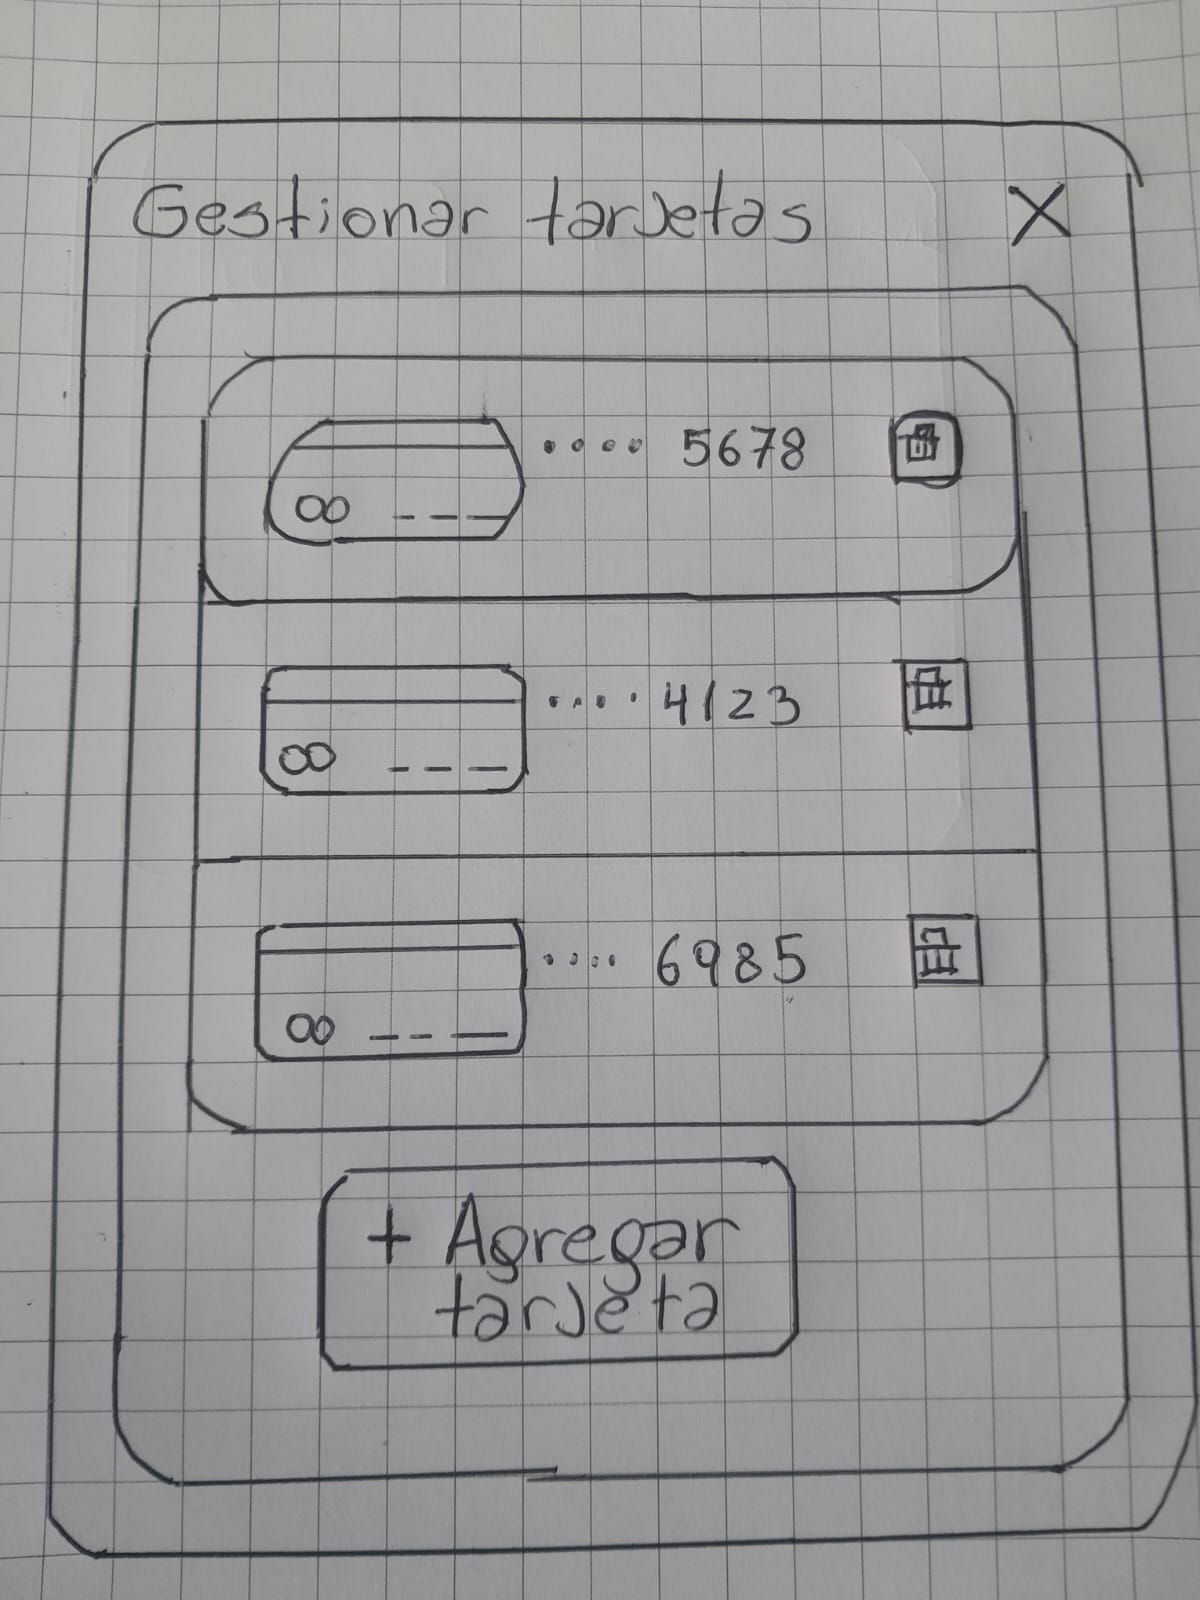 Gestionar tarjetas X
•••• 5678
•••• 4123
•••• 6985
+ Agregar
tarjeta